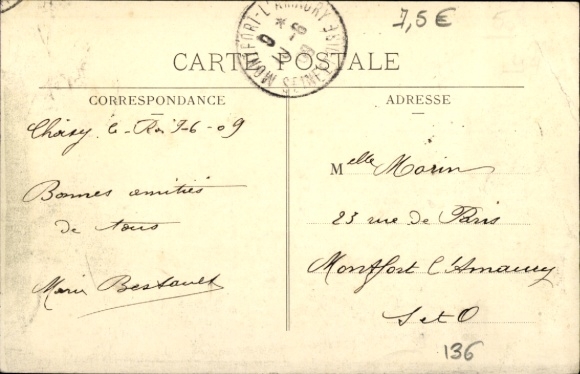 7,5 €
MONTFORT-L'AMAURY
SEINE ET OISE
CARTE POSTALE
CORRESPONDANCE
Choisy le-Roi 7-6-09
Bonnes amitiés
de tous
Marie Bessault
ADRESSE
Melle Morin
23 rue de Paris
Montfort l'Amaury
S et O
136